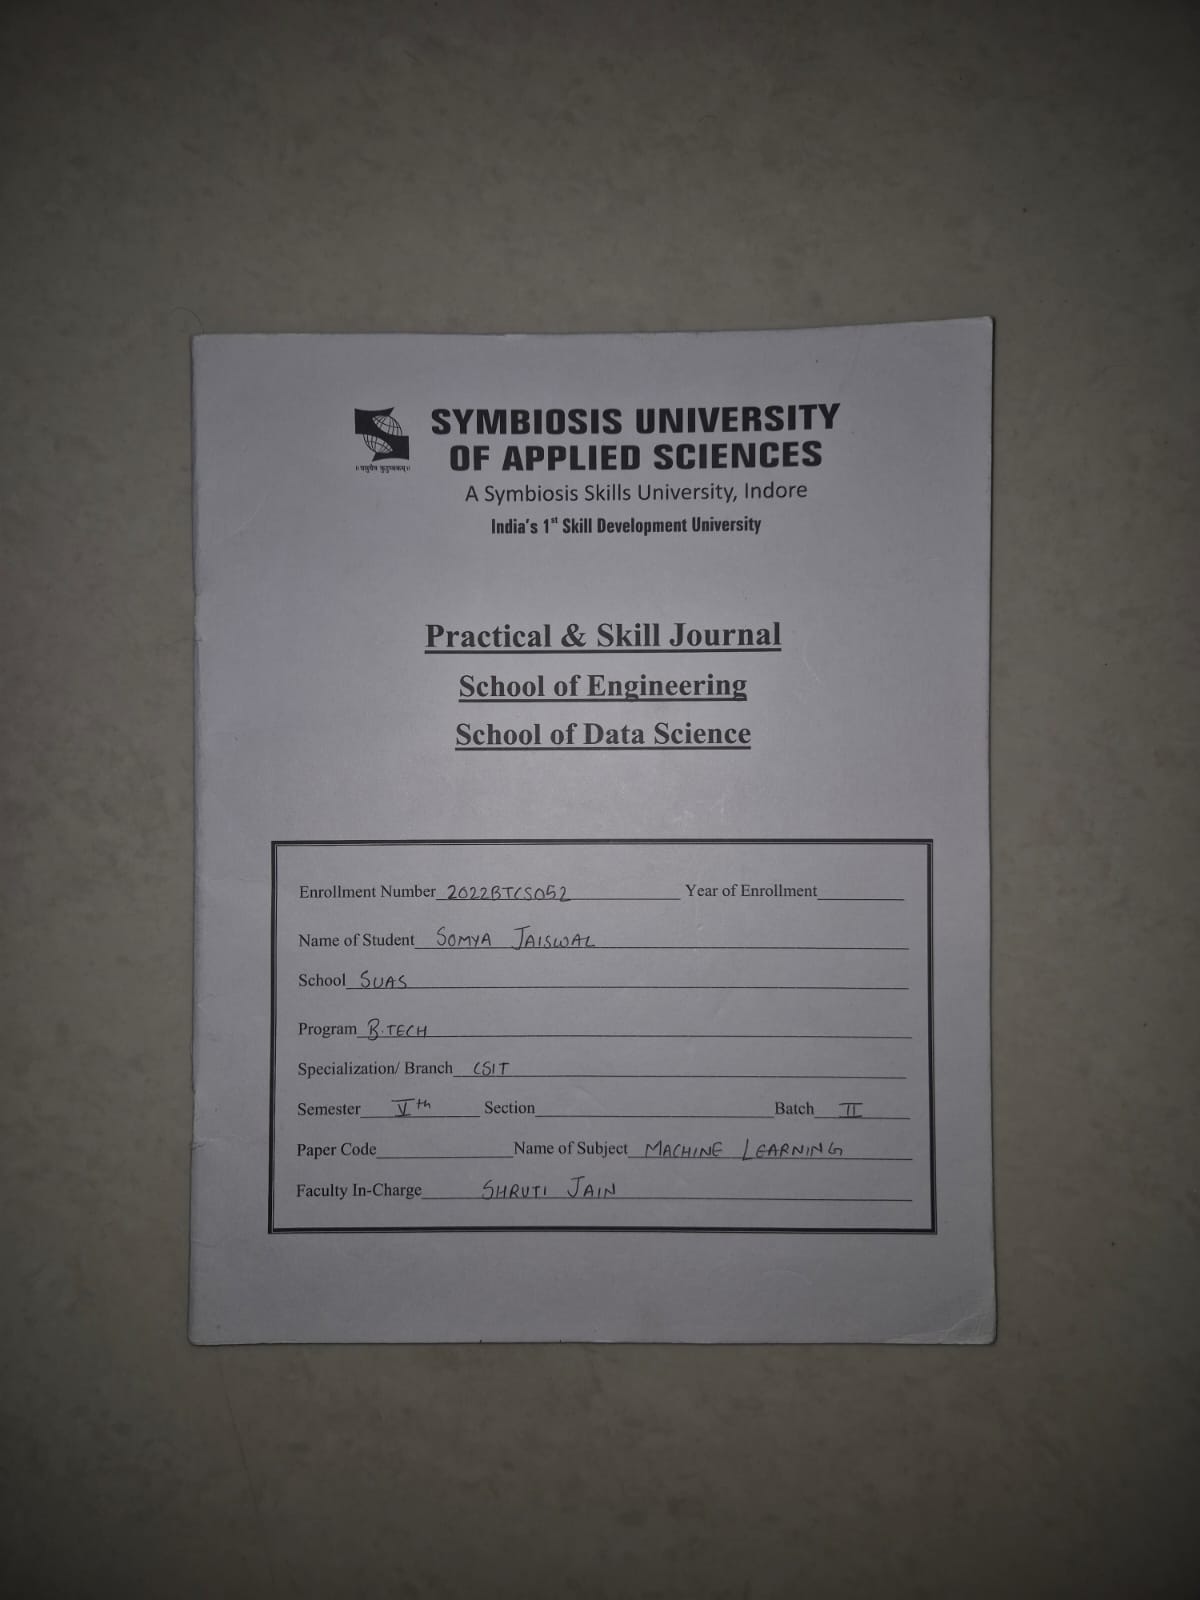 SYMBIOSIS UNIVERSITY
OF APPLIED SCIENCES
॥ वसुधैव कुटुम्बकम् ॥
A Symbiosis Skills University, Indore
India's 1st Skill Development University
Practical & Skill Journal
School of Engineering
School of Data Science
Enrollment Number 2022BTCS052 Year of Enrollment
Name of Student SOMYA JAISWAL
School SUAS
Program B.TECH
Specialization/ Branch CSIT
Semester Vth Section Batch II
Paper Code Name of Subject MACHINE LEARNING
Faculty In-Charge SHRUTI JAIN